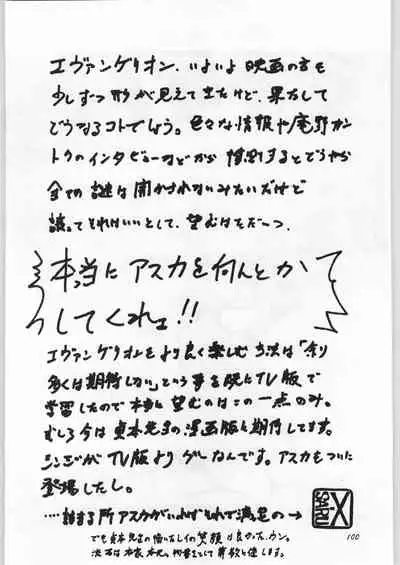 エヴァンゲリオン、いよいよ映画の方も
少しずつ形が見えて来たけど、果たして
どうなるコトでしょう。色々な情報や庵野カン
トクのインタビューなどから推測するとどうやら
全ての謎は明かされないみたいだけど
譲ってそれはいいとして、望むはただ一つ、
本当にアスカを何んとか
してくれェ!!
エヴァンゲリオンをより良く楽しむ方法は「余り
多くは期待しない」という事を既にTV版で
学習したので本当に望むのはこの一点のみ。
むしろ今は貞本先生の漫画版に期待してます。
シンジがTV版よりグレなんです。アスカもついに
登場したし。
‥‥詰まる所アスカがいればそれで満足の→
でも貞本先生の描いたレイの笑顔は良かったっスン。
X-SARU
100